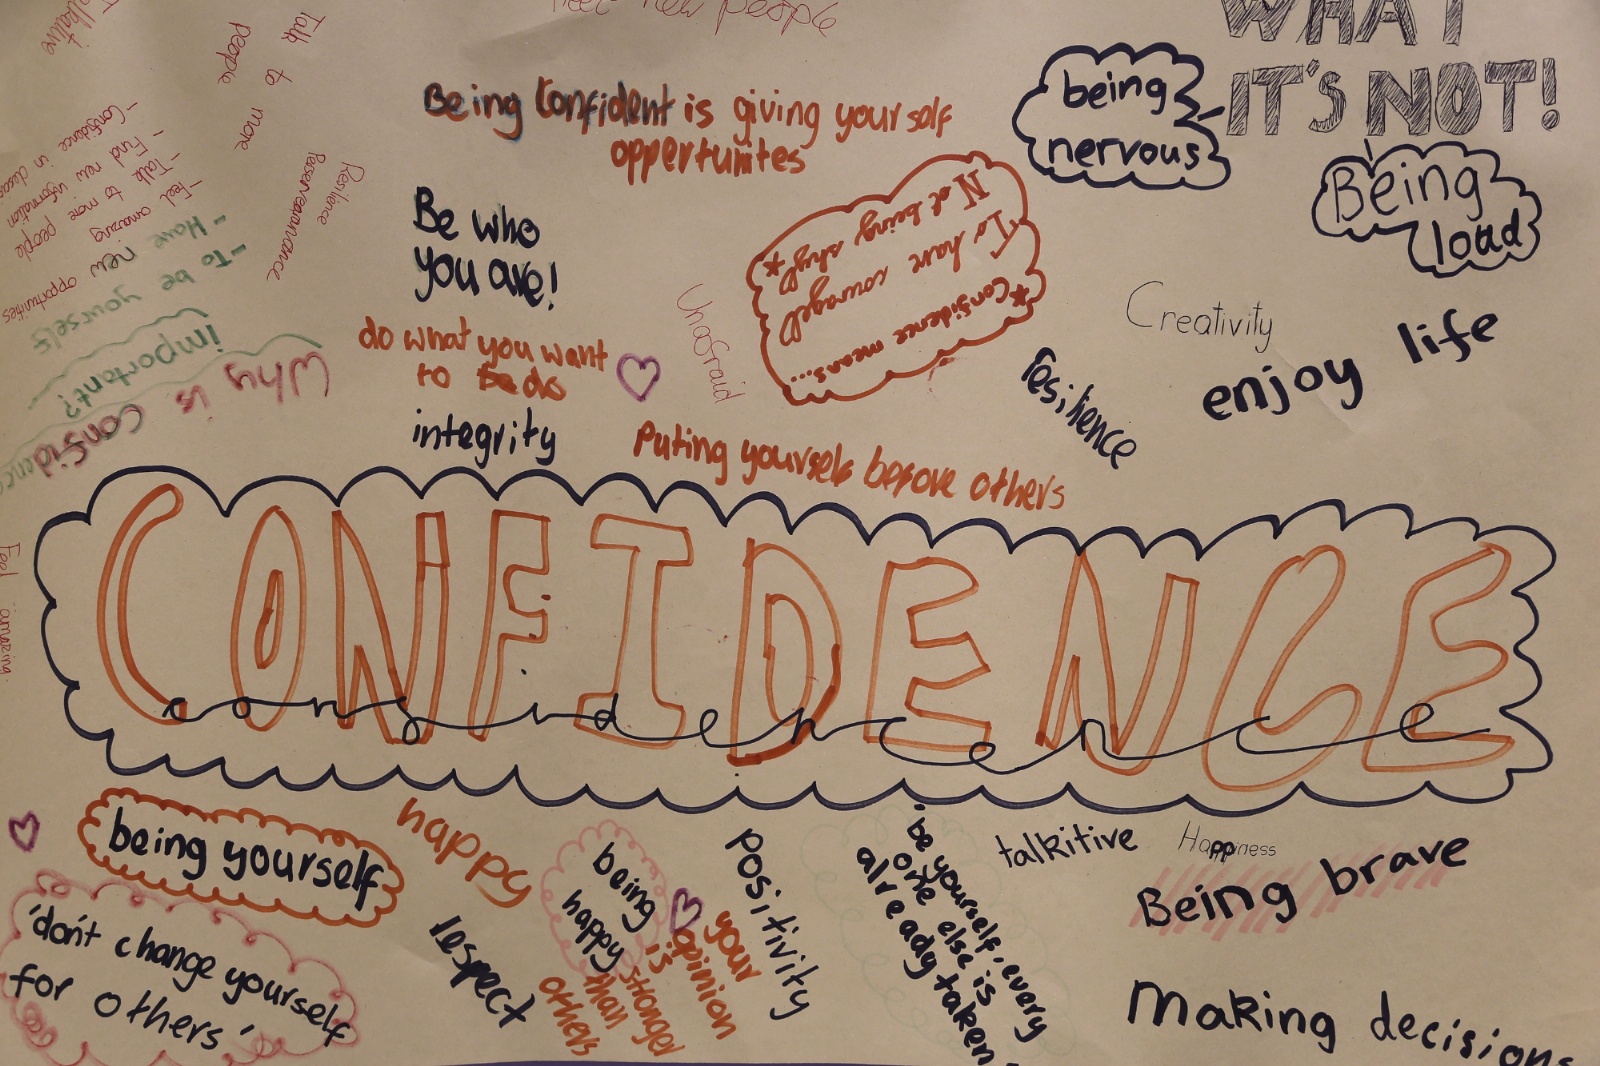 Talkative
Talk to more
people
new people
WHAT
IT'S NOT!
being
nervous
Being
load
Being Confident is giving yourself
oppertunites
Resilience
Perserverance
- Confidence in
- Find new information
- Talk to more people
- Feel amazing
- Have new opportunities
- To be yourself
Why is
confidence
important?
Be who
you are!
do what you want
to do
integrity
Unafraid
*Confidence means...
To have courage
Not being shy! *
Creativity
enjoy life
resilience
Puting yourself before others
CONFIDENCE
confidence
Feel amazing
being yourself
happy
'don't change yourself
for others'
respect
being
happy
your
opinion
is
stronger
than
others
positivity
be yourself, every
one else is
already taken
talkitive
Happiness
Being brave
Making decisions